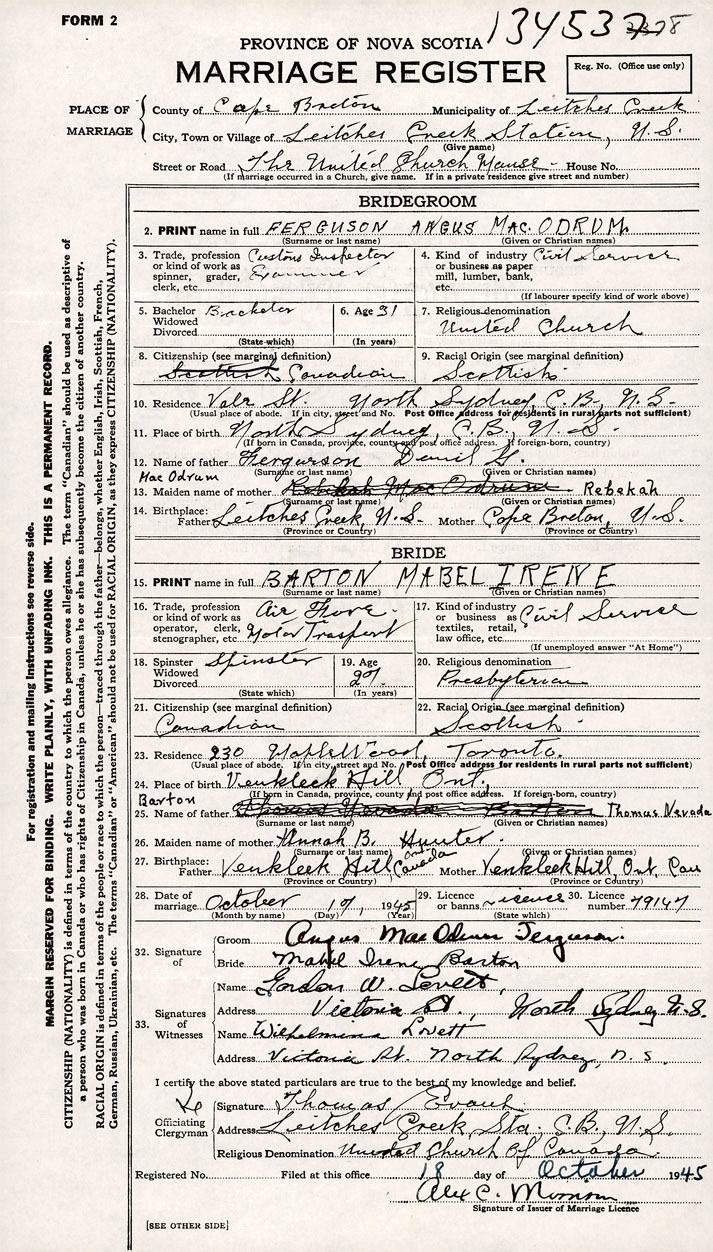 FORM 2
134537
PROVINCE OF NOVA SCOTIA
MARRIAGE REGISTER
Reg. No. (Office use only)
PLACE OF MARRIAGE
County of Cape Breton Municipality of Leitches Creek
City, Town or Village of Leitches Creek Station, N.S.
(Give name)
Street or Road The United Church Manse - House No.
(If marriage occurred in a Church, give name. If in a private residence give street and number)
BRIDEGROOM
2. PRINT name in full FERGUSON ANGUS MAC ODRUM
(Surname or last name) (Given or Christian names)
3. Trade, profession or kind of work as spinner, grader, clerk, etc. Customs Inspector Examiner
4. Kind of industry or business as paper mill, lumber, bank, etc. Civil Service
(If labourer specify kind of work above)
5. Bachelor Widowed Divorced Bachelor
(State which)
6. Age 31
(In years)
7. Religious denomination
United Church
8. Citizenship (see marginal definition)
Scottish Canadian
9. Racial Origin (see marginal definition)
Scottish
10. Residence St. North Sydney, C.B., N.S.
(Usual place of abode. If in city, street and No. Post Office address for residents in rural parts not sufficient)
11. Place of birth North Sydney, C.B., N.S.
(If born in Canada, province, county and post office address. If foreign-born, country)
12. Name of father Fergurson G.
(Surname or last name) (Given or Christian names)
Mac Odrum
13. Maiden name of mother Rebekah Mac Odrum Rebekah
(Surname or last name) (Given or Christian names)
14. Birthplace: Father Leitches Creek, N.S. Mother Cape Breton, N.S.
(Province or Country) (Province or Country)
BRIDE
15. PRINT name in full BARTON MABEL IRENE
(Surname or last name) (Given or Christian names)
16. Trade, profession or kind of work as operator, clerk, stenographer, etc. Air Force - Motor Trasport
17. Kind of industry or business as textiles, retail, law office, etc. Civil Service
(If unemployed answer "At Home")
18. Spinster Widowed Divorced Spinster
(State which)
19. Age
(In years)
20. Religious denomination
Presbyterian
21. Citizenship (see marginal definition)
Canadian
22. Racial Origin (see marginal definition)
Scottish
23. Residence 230 MapleWood, Toronto.
(Usual place of abode. If in city, street and No. Post Office address for residents in rural parts not sufficient)
24. Place of birth Venkleek Hill Ont.
(If born in Canada, province, county and post office address. If foreign-born, country)
Barton
25. Name of father Thomas Nevada Barton Thomas Nevada
(Surname or last name) (Given or Christian names)
26. Maiden name of mother Annah B. Hunter
(Surname or last name) (Given or Christian names)
27. Birthplace: Father Venkleek Hill, Ont. Canada Mother Venkleek Hill, Ont, Can
(Province or Country) (Province or Country)
28. Date of marriage October 17, 1945
(Month by name) (Day) (Year)
29. Licence or banns Licence
(State which)
30. Licence number 79147
32. Signature of
Groom Angus MacOdrum Ferguson.
Bride Mabel Irene Barton
33. Signatures of Witnesses
Name Gordon W. Lovett,
Address Victoria St., North Sydney N.S.
Name Wilhelmina Lovett
Address Victoria St. North Sydney, N.S.
I certify the above stated particulars are true to the best of my knowledge and belief.
Officiating Clergyman
Signature Thomas Evans
Address Leitches Creek Sta. C.B., N.S.
Religious Denomination United Church Of Canada
Registered No. Filed at this office 18 day of October 1945
Alex C.
Signature of Issuer of Marriage Licence
[SEE OTHER SIDE]
For registration and mailing instructions see reverse side.
MARGIN RESERVED FOR BINDING. WRITE PLAINLY, WITH UNFADING INK. THIS IS A PERMANENT RECORD.
CITIZENSHIP (NATIONALITY) is defined in terms of the country to which the person owes allegiance. The term "Canadian" should be used as descriptive of
a person who was born in Canada or who has rights of Citizenship in Canada, unless he or she has subsequently become the citizen of another country.
RACIAL ORIGIN is defined in terms of the people or race to which the person—traced through the father—belongs, whether English, Irish, Scottish, French,
German, Russian, Ukrainian, etc. The terms "Canadian" or "American" should not be used for RACIAL ORIGIN, as they express CITIZENSHIP (NATIONALITY).